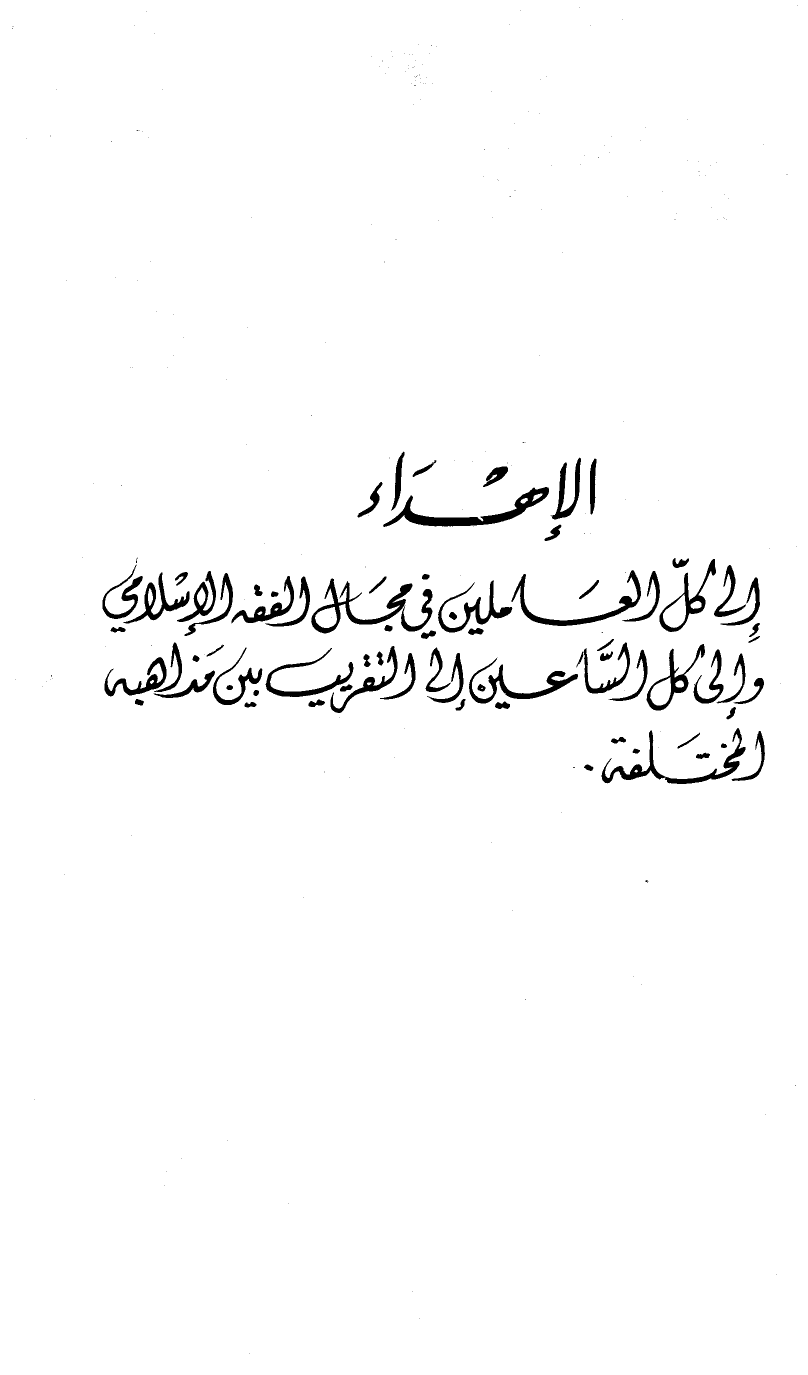 الإهْداء
إِلى كلّ العَاملين في مجَال الفقه الإسْلامي
وإلى كل السَّاعين إلى التقريب بين مَذاهبه
المختَلفة .